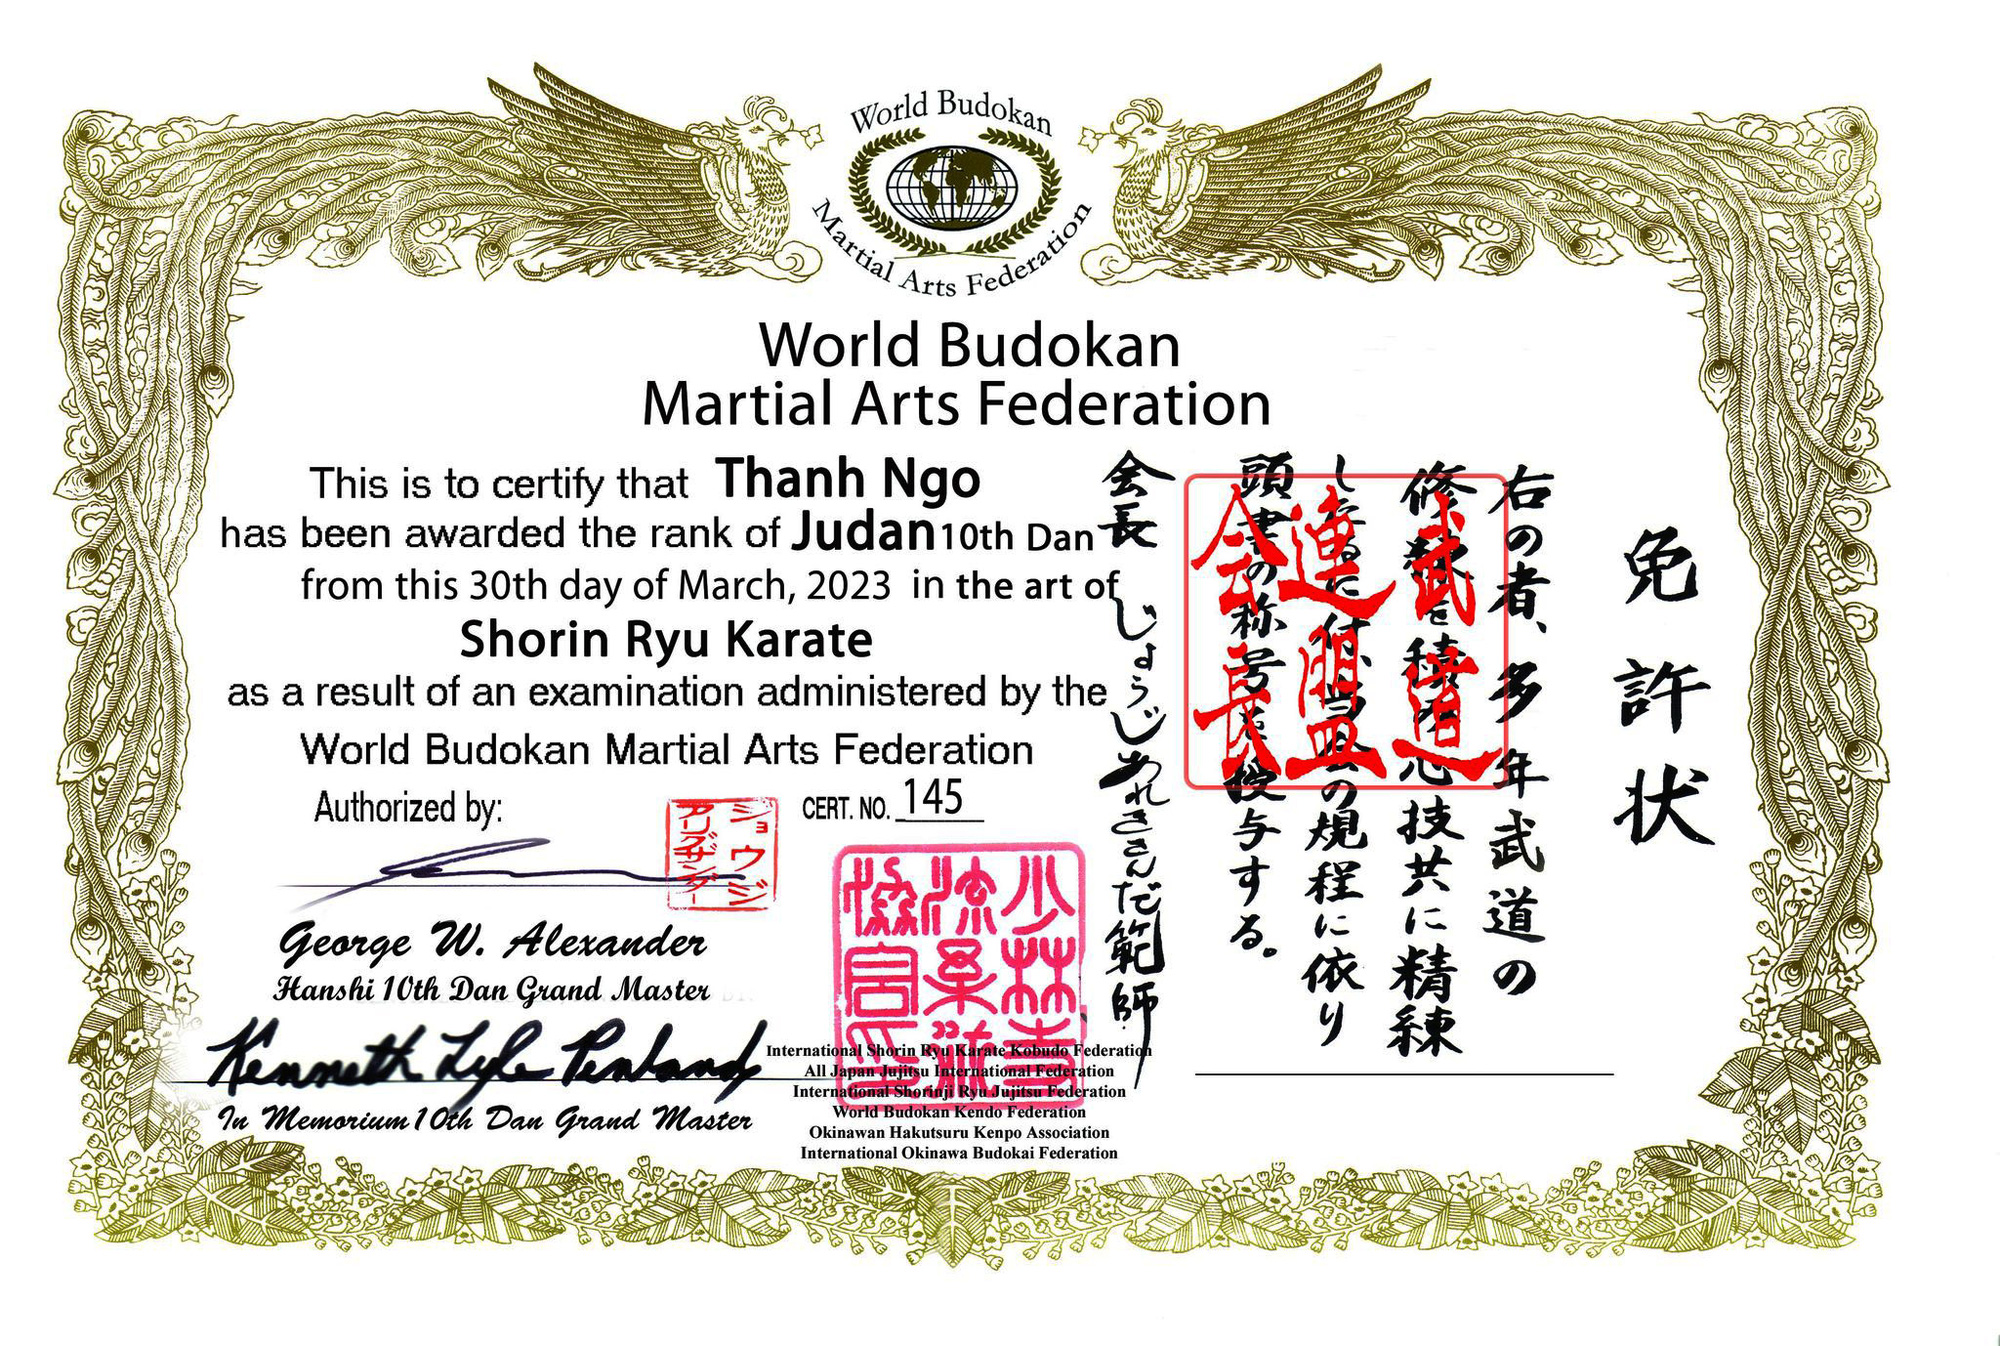 World Budokan
Martial Arts Federation
World Budokan
Martial Arts Federation
This is to certify that Thanh Ngo
has been awarded the rank of Judan 10th Dan
from this 30th day of March, 2023 in the art of
Shorin Ryu Karate
as a result of an examination administered by the
World Budokan Martial Arts Federation
Authorized by:
CERT. NO. 145
ジョウジ
アリグザンダー
George W. Alexander
Hanshi 10th Dan Grand Master
Kenneth Lyle Penland
In Memorium 10th Dan Grand Master
少林寺
流空手
協会印
International Shorin Ryu Karate Kobudo Federation
All Japan Jujitsu International Federation
International Shorinji Ryu Jujitsu Federation
World Budokan Kendo Federation
Okinawan Hakutsuru Kenpo Association
International Okinawa Budokai Federation
免許状
右の者、多年武道の
修練を積み心技共に精練
規程に依り
頭書の称号を授与する。
会長 じょうじあれきさんだ範師
武道
連盟
会長